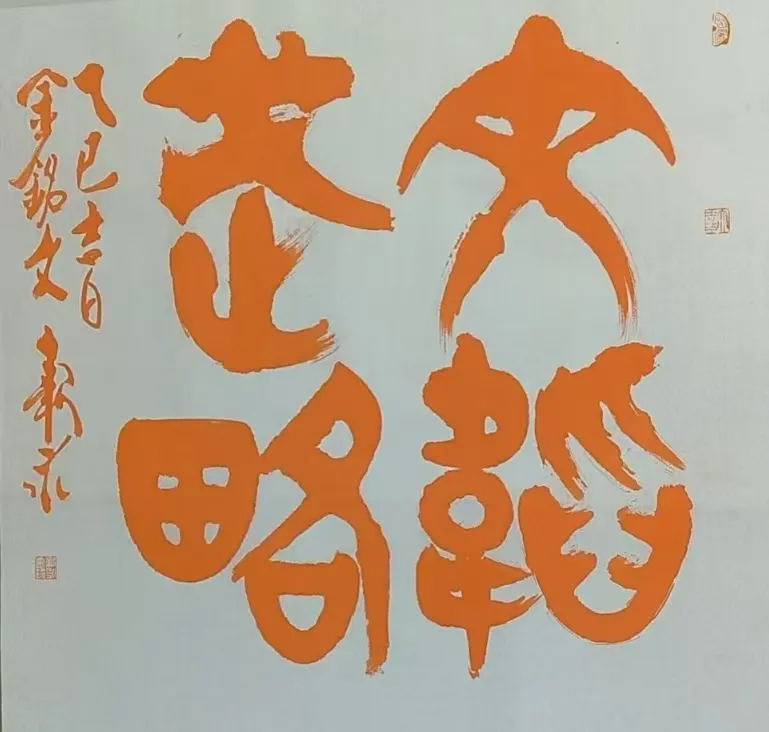 文韜
武略
乙巳吉日
金銘文